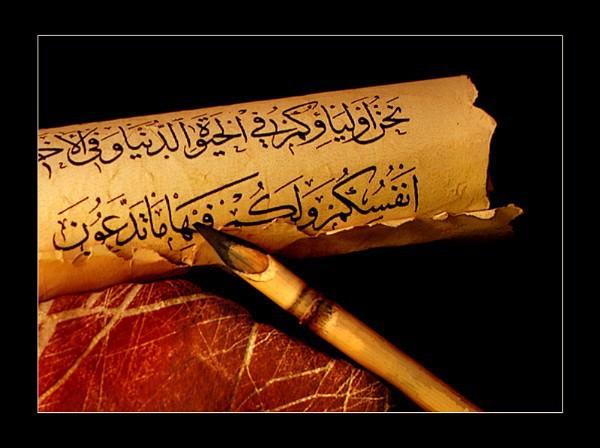 نَحْنُ أَوْلِيَاؤُكُمْ فِي الْحَيَوٰةِ الدُّنْيَا وَفِي الْآخِ
أَنْفُسُكُمْ وَلَكُمْ فِيهَا مَا تَدَّعُونَ